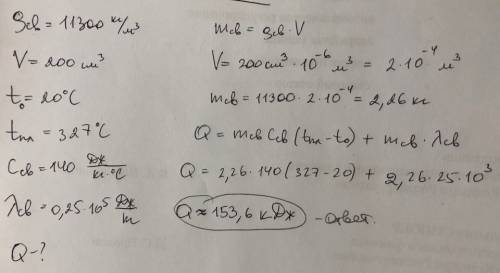 ρсв = 11300 кг/м³
V = 200 см³
t₀ = 20°C
tпл = 327°C
Cсв = 140 Дж/кг·°C
λсв = 0,25·10⁵ Дж/кг
Q - ?
mсв = ρсв · V
V = 200 см³ · 10⁻⁶ м³ = 2·10⁻⁴ м³
mсв = 11300 · 2·10⁻⁴ = 2,26 кг
Q = mсв Cсв (tпл - t₀) + mсв · λсв
Q = 2,26 · 140 (327 - 20) + 2,26 · 25·10³
Q ≈ 153,6 кДж - ответ.